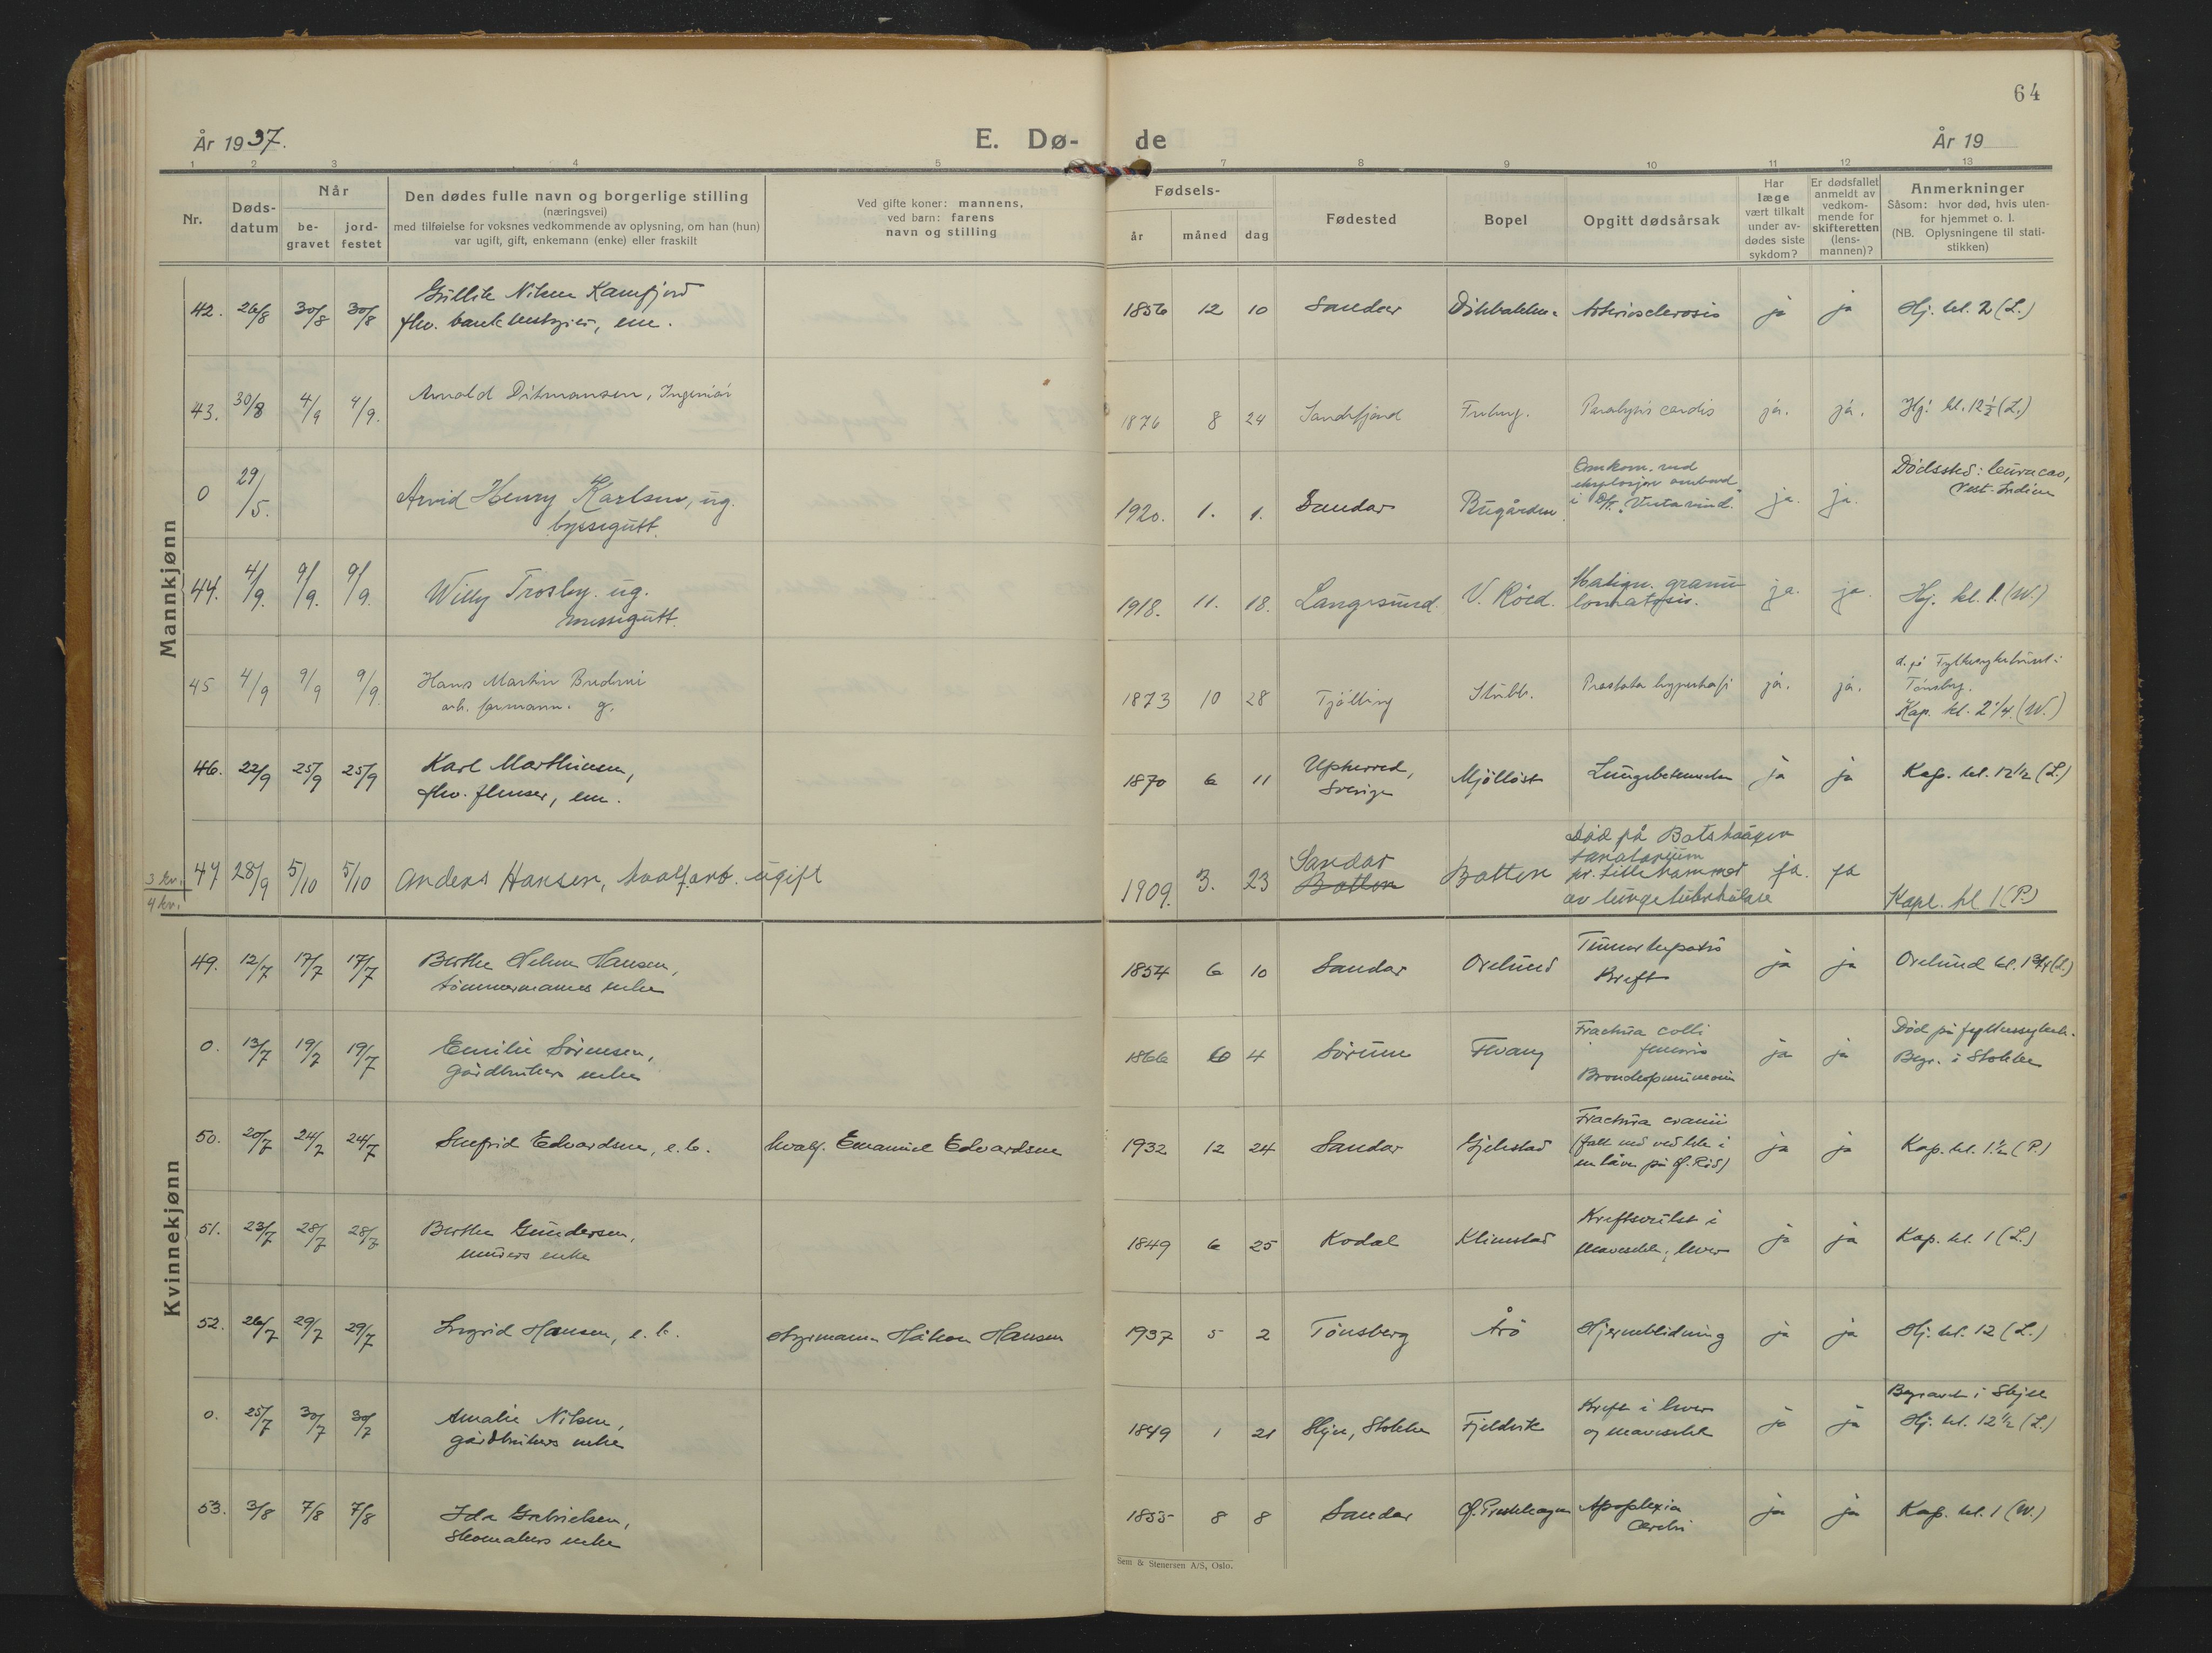 64
År 1937.
E. Dø-
de
År 19
1 2 3 4 5 7 8 9 10 11 12 13
Nr.
Døds-
datum
Når
be-
gravet
jord-
festet
Den dødes fulle navn og borgerlige stilling
(næringsvei)
med tilføielse for voksnes vedkommende av oplysning, om han (hun)
var ugift, gift, enkemann (enke) eller fraskilt
Ved gifte koner: mannens,
ved barn: farens
navn og stilling
Fødsels-
år måned dag
Fødested
Bopel
Opgitt dødsårsak
Har
læge
vært tilkalt
under av-
dødes siste
sykdom?
Er dødsfallet
anmeldt av
vedkom-
mende for
skifteretten
(lens-
mannen)?
Anmerkninger
Såsom: hvor død, hvis uten-
for hjemmet o. l.
(NB. Oplysningene til stati-
stikken)
Mannkjønn
42. 26/8 30/8 30/8 Gullik Nilsen Kamfjord
fhv. bankbestyrer, em.
1856 12 10 Sandar Arteriosclerosis ja ja Hj. kl. 2 (L.)
43. 30/8 4/9 4/9. Arnold Ditmansen, Ingeniør
1876 8 24 Sandefjord Paralysis cordis ja. ja. Hj. kl. 12½ (L.)
0 29/5. Arvid Henry Karlsen, ug.
byssegutt.
1920. 1. 1. Sandar Bugården
Omkom. ved
eksplosjon ombord
i D/T. "Vestavind."
ja. ja.
Dødssted: Curacao,
Vest-Indien
44. 4/9. 9/9. 9/9. Willy Trosby. ug.
messegutt.
1918. 11. 18. Langesund. V. Röed.
Malign. granu-
lomatosis.
ja. ja. Hj. kl. 1. (W.)
45 4/9 9/9 9/9 Hans Martin
arb. formann. g.
1873 10 28 Tjølling Stubb. Prostata hypertrofi ja. ja.
d. på Fylkessykehuset i
Tønsberg.
Kap. kl. 2 1/4. (W.)
46. 22/9 25/9 25/9 Karl Marthinsen,
fhv. flenser, em.
1870 6 11
Upherred,
Sverige
Mjølløst Lungebetennelse ja ja Kap. kl. 12½ (L.)
3 kv.
4 kv.
47 28/9 5/10 5/10 Anders Hansen, hvalfarb. ugift
1909. 3. 23
Sandar
Botten
Botten
Død på Botshaugen
sanatorium
pr. Lillehammer
av lungetuberkulose
ja. ja
Kapl. kl 1 (P.)
Kvinnekjønn
49. 12/7 17/7 17/7 Berthe Helene Hansen,
tømmermanns enke
1854 6 10 Sandar Orelund
Tumor hepatis
Kreft
ja ja Orelund kl. 1 3/4 (L.)
0. 13/7 19/7 19/7 Emilie Sørensen,
gårdbrukers enke
1866 10 4 Sørum Hvang
Fractura colli
femoris
Bronchopneumoni
ja ja
Død på fylkessykeh.
Begr. i Stokke
50. 20/7 24/7 24/7 Snefrid Edvardsen, e. b. hvalf. Emanuel Edvardsen
1932 12 24 Sandar Gjekstad
Fractura cranii
(falt ned ved lek i
en låve på Ø. Rød)
ja ja Kap. kl. 1½ (P.)
51. 23/7 28/7 28/7 Berthe Gundersen,
murers enke
1849 6 25 Kodal Klinestad
Kreftsvulst i
mavesekk, lever
ja ja Kap. kl. 1 (L.)
52. 26/7 29/7 29/7 Ingrid Hansen, e. b. styrmann Håkon Hansen
1937 5 2 Tønsberg Årø Hjerneblødning ja ja Hj. kl. 12 (L.)
0. 25/7 30/7 30/7 Amalie Nilsen,
gårdbrukers enke
1849 1 21 Skjee, Stokke Fjeldvik
Kreft i lever
og mavesekk
ja ja
Begravet i Skjee
Hj. kl. 12½ (L.)
53. 3/8 7/8 7/8 Ida Gabrielsen,
skomakers enke
1855 8 8 Sandar Ø. Preståsen
Apoplexia
cerebri
ja ja Kap. kl. 1 (W.)
Sem & Stenersen A/S, Oslo.